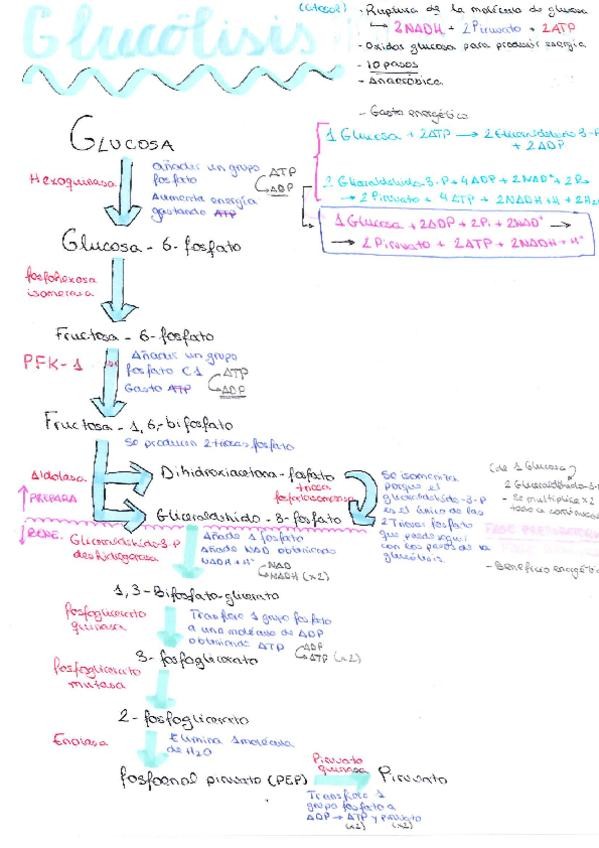 Glucólisis
(citosol) - Ruptura de la molécula de glucosa
→ 2NADH + 2 Piruvato + 2ATP
- Oxidar glucosa para producir energía
- 10 pasos
- Anaeróbica
- Gasto energético
1 Glucosa + 2ATP → 2 Gliceraldehído-3-P
+ 2ADP
2 Gliceraldehído-3-P + 4ADP + 2NAD⁺ + 2P
→ 2 Piruvato + 4ATP + 2NADH + H + 2H₂
1 Glucosa + 2ADP + 2Pi + 2NAD⁺ →
→ 2 Piruvato + 2ATP + 2NADH + H⁺
GLUCOSA
Hexoquinasa
añadir un grupo
fosfato
Aumenta energía
gastando ATP
ATP
ADP
Glucosa - 6 - fosfato
fosfohexosa
isomerasa
Fructosa - 6 - fosfato
PFK-1
Añadir un grupo
fosfato C1
Gasto ATP
ATP
ADP
Fructosa - 1,6 - bifosfato
Se producen 2 triosas fosfato
Aldolasa
PREPARA
Dihidroxiacetona - fosfato
triosa
fosfatoisomerasa
Gliceraldehido - 3 - fosfato
Se isomeriza
porque el
gliceraldehido-3-P
es el único de las
2 Triosas fosfato
que puede seguir
con los pasos de la
glucólisis.
(de 1 Glucosa)
2 Gliceraldehído-3-P
- Se multiplica x2
todo a
- Beneficio energético
BENE.
Gliceraldehído-3-P
deshidrogenasa
Añade 1 fosfato
Añade NAD obteniendo
NADH + H⁺
NAD
NADH (x2)
1,3 - Bifosfato-glicerato
fosfoglicerato
quinasa
Transfiere 1 grupo fosfato
a una molécula de ADP
obteniendo ATP
ADP
ATP (x2)
3 - fosfoglicerato
fosfoglicerato
mutasa
2 - fosfoglicerato
Enolasa
Elimina 1 molécula
de H₂O
fosfoenol piruvato (PEP)
Piruvato
quinasa
Piruvato
Transfiere 1
grupo fosfato a
ADP → ATP y piruvato
(x2) (x2)